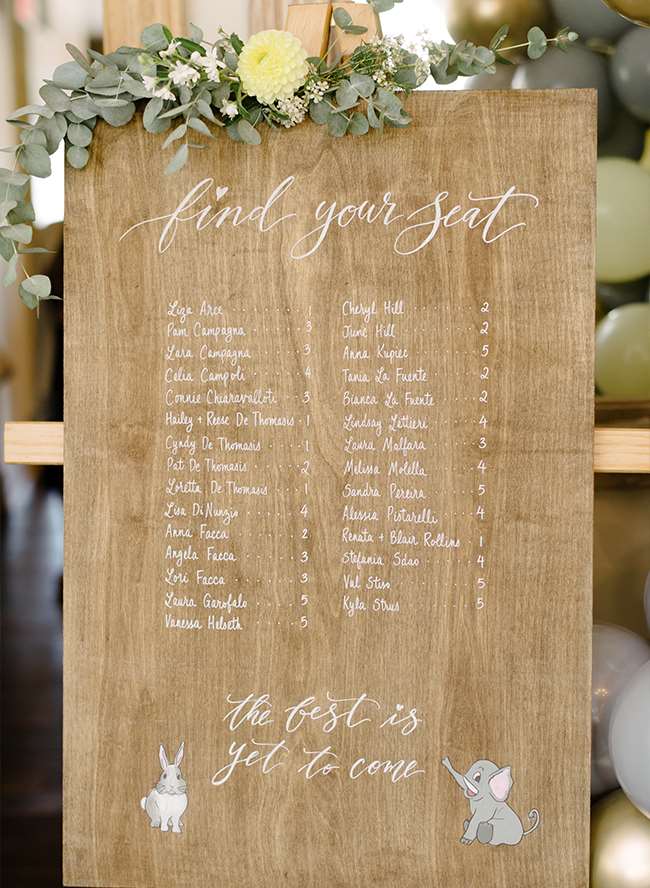 find your seat
Liza Arce · · · · · · · 1
Pam Campagna · · · · · 3
Lara Campagna · · · · · 3
Celia Campoli · · · · · 4
Connie Chiaravalloti · · · 3
Hailey + Reese De Thomasis · 1
Cyndy De Thomasis · · · · 1
Pat De Thomasis · · · · · 2
Loretta De Thomasis · · · 1
Lisa DiNunzio · · · · · 4
Anna Facca · · · · · · 2
Angela Facca · · · · · 3
Lori Facca · · · · · · 3
Laura Garofalo · · · · · 5
Vanessa Helseth · · · · 5
Cheryl Hill · · · · · · 2
June Hill · · · · · · · 2
Anna Kupiec · · · · · · 5
Tania La Fuente · · · · 2
Bianca La Fuente · · · · 2
Lindsay Lettieri · · · · 4
Laura Malfara · · · · · 3
Melissa Molella · · · · 4
Sandra Pereira · · · · · 5
Alessia Pistarelli · · · · 4
Renata + Blair Rollins · 1
Stefania Sdao · · · · · 4
Val Stiso · · · · · · · 5
Kyla Strus · · · · · · 5
the best is
yet to come